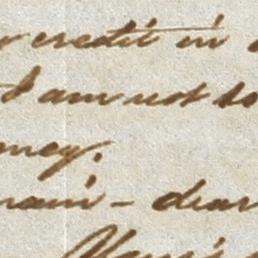 credit in
I am not so
ney.
main - dear
Your's